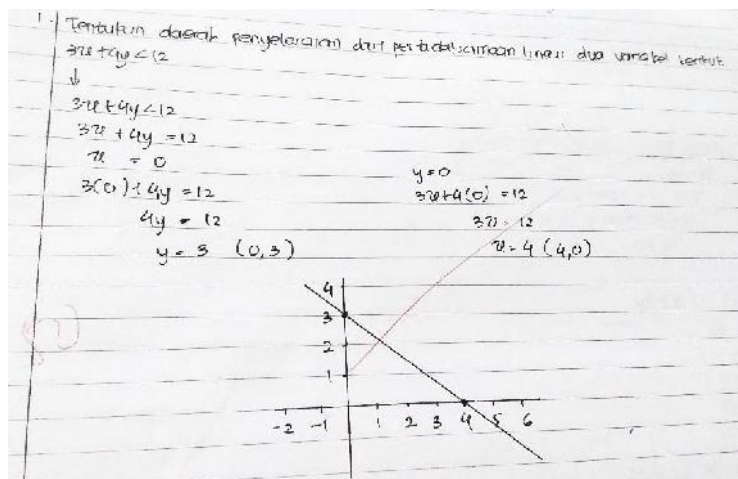 1. Tentukan daerah penyelesaian dari pertidaksamaan linear dua variabel berikut
3x + 4y < 12
↓
3x + 4y < 12
3x + 4y = 12
x = 0
3(0) + 4y = 12
4y = 12
y = 3 (0,3)
y = 0
3x + 4(0) = 12
3x = 12
x = 4 (4,0)
4
3
2
1
-2 -1 1 2 3 4 5 6